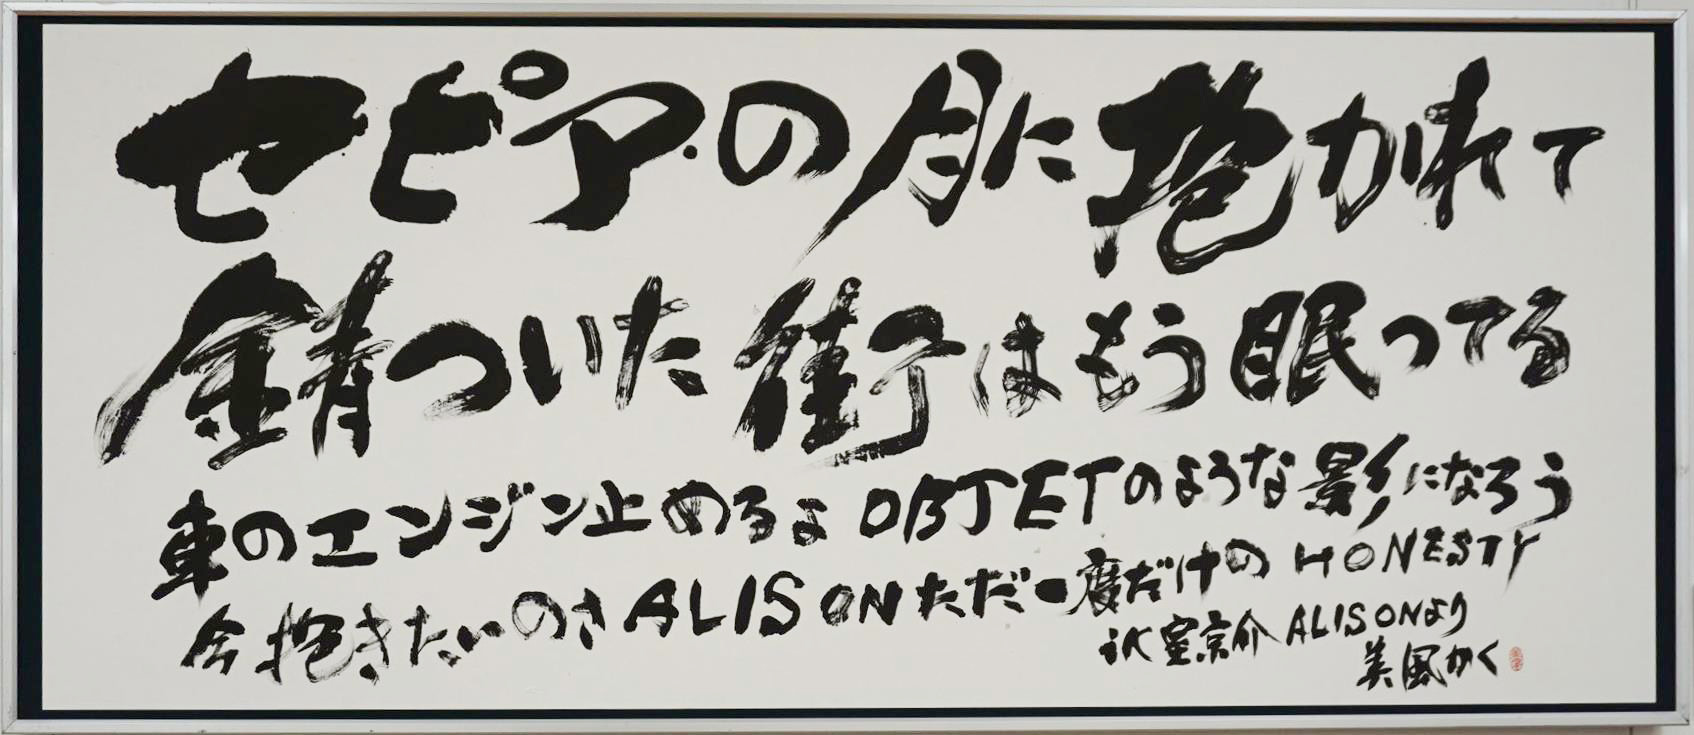 セピアの月に抱かれて
錆ついた街はもう眠ってる
車のエンジン止めるよ OBJETのような影になろう
今抱きたいのさ ALISON ただ一度だけの HONESTY
氷室京介 ALISONより
美風かく